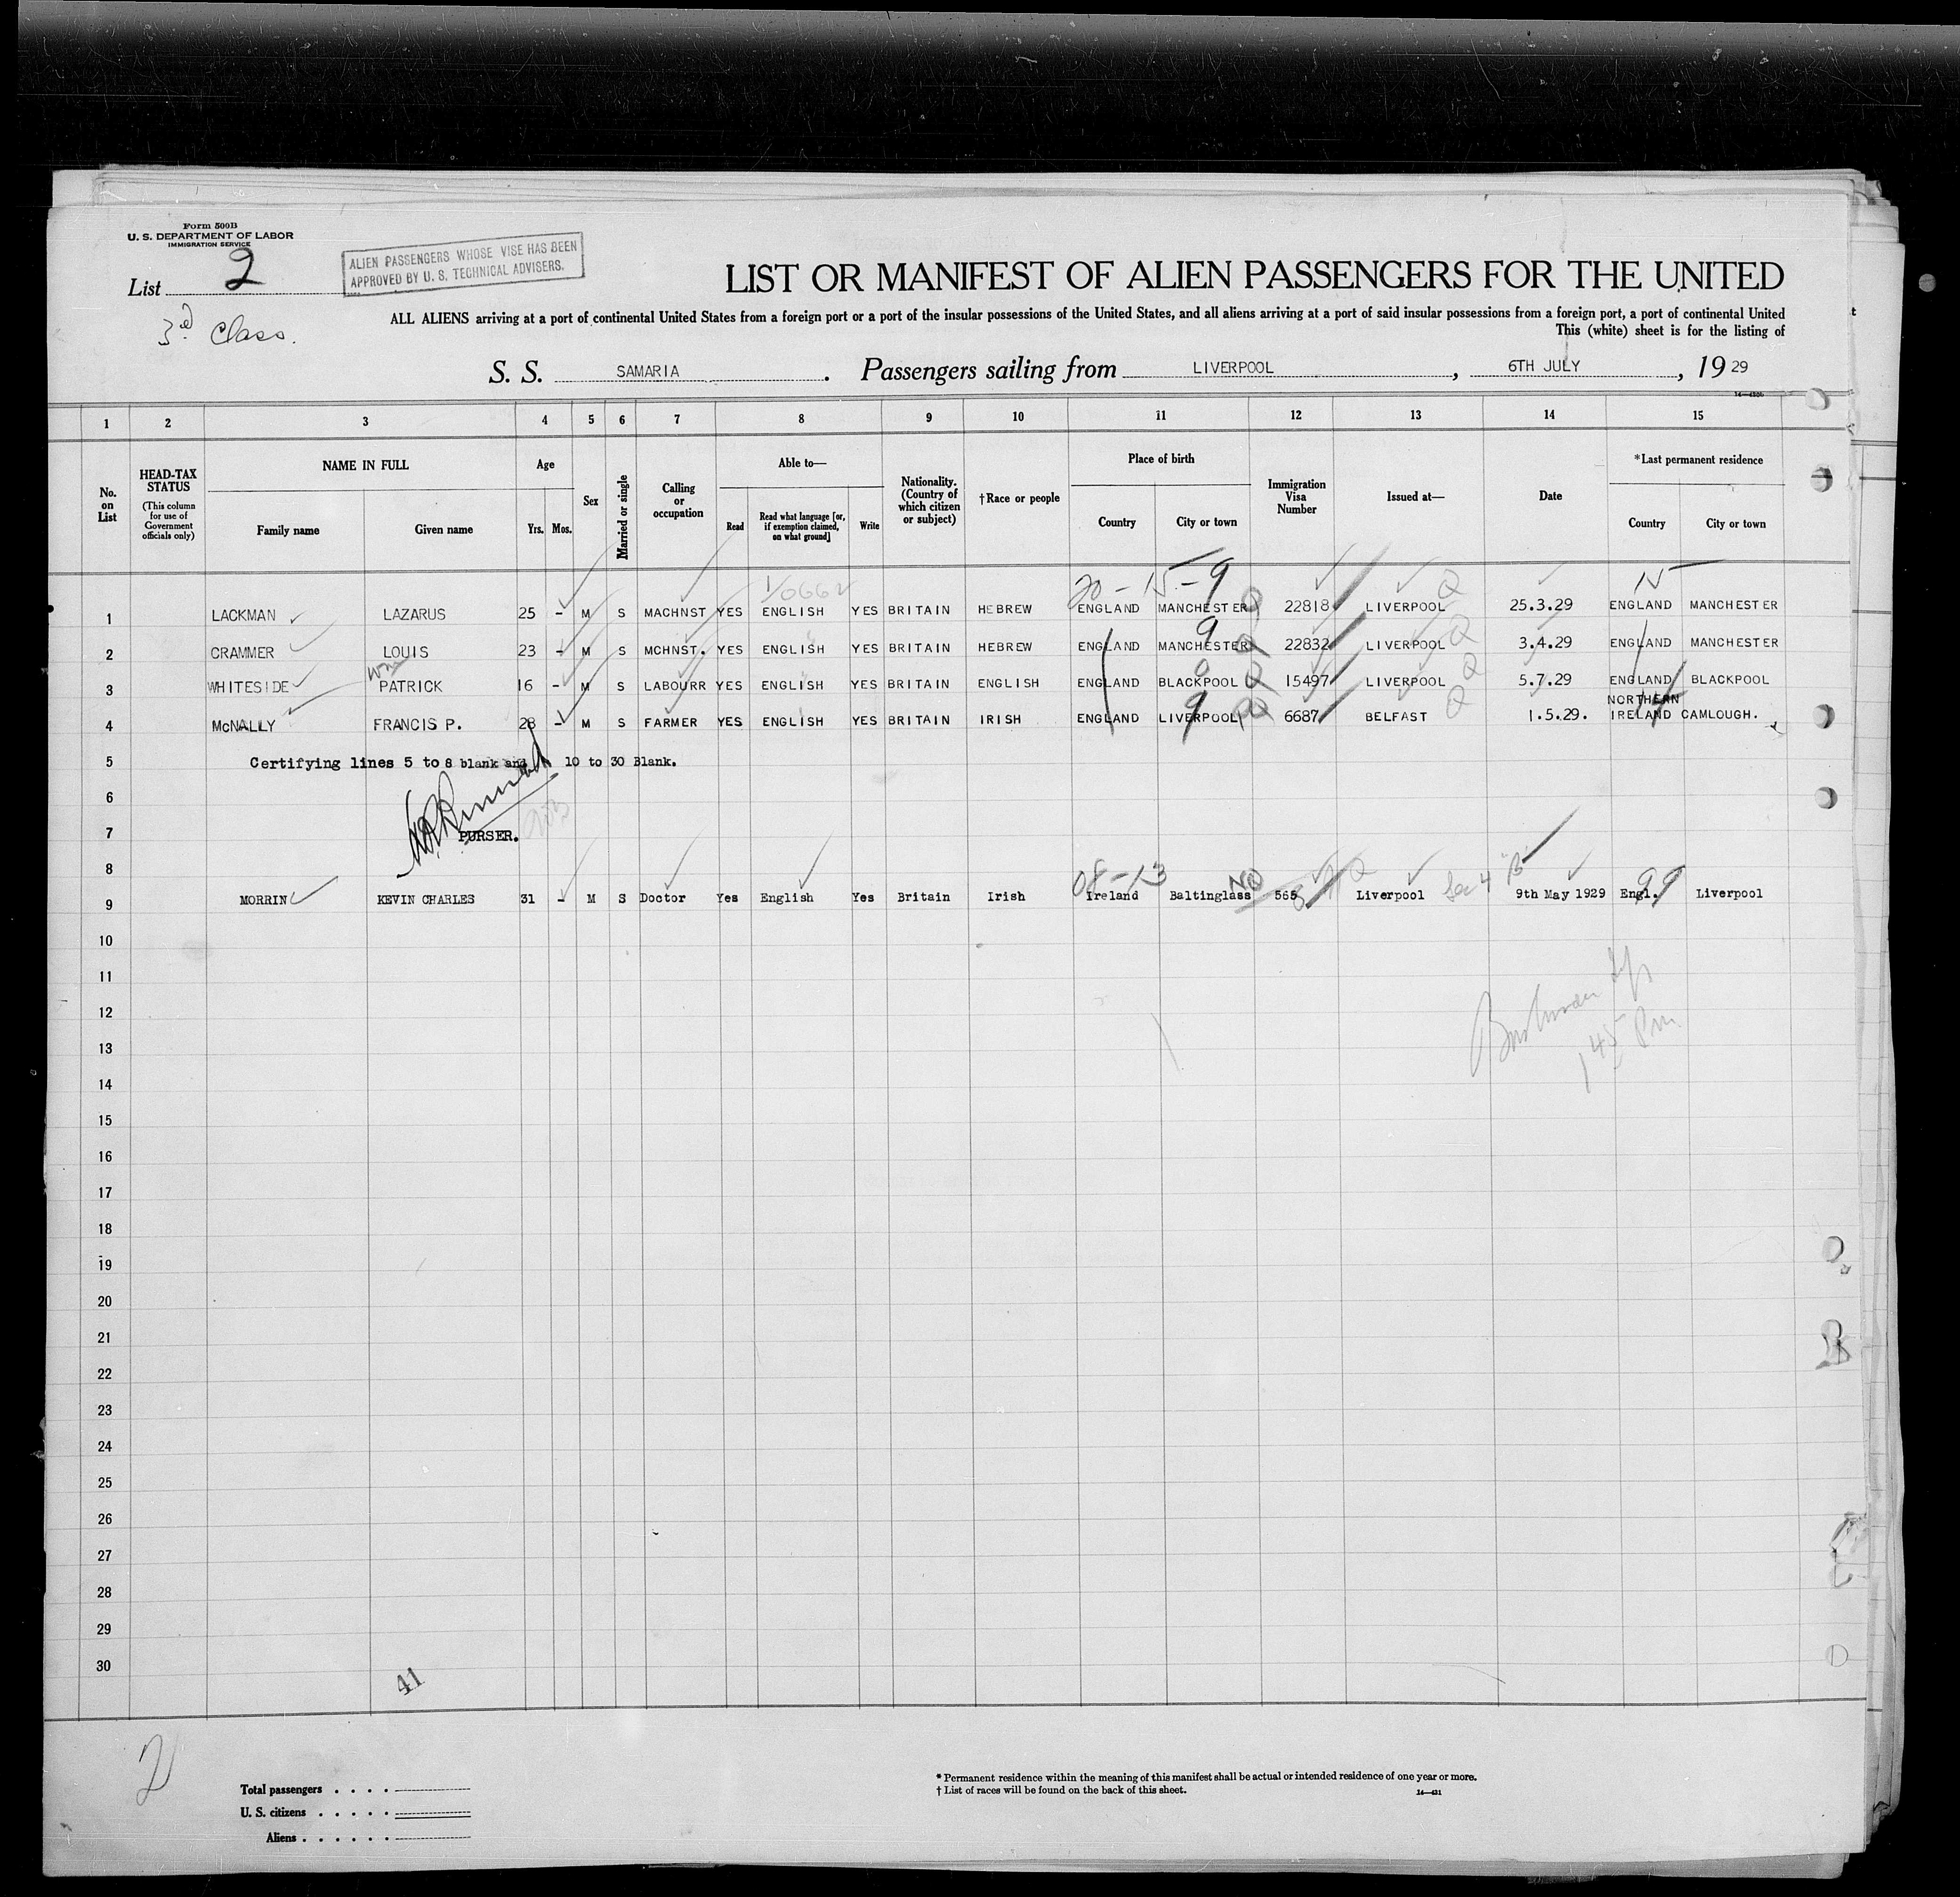 Form 500B
U. S. DEPARTMENT OF LABOR
IMMIGRATION SERVICE
List 2
ALIEN PASSENGERS WHOSE VISE HAS BEEN
APPROVED BY U. S. TECHNICAL ADVISERS.
3rd Class.
LIST OR MANIFEST OF ALIEN PASSENGERS FOR THE UNITED
ALL ALIENS arriving at a port of continental United States from a foreign port or a port of the insular possessions of the United States, and all aliens arriving at a port of said insular possessions from a foreign port, a port of continental United
This (white) sheet is for the listing of
S. S. SAMARIA. Passengers sailing from LIVERPOOL, 6TH JULY, 1929
1 2 3 4 5 6 7 8 9 10 11 12 13 14 15
No. on List
HEAD-TAX STATUS
(This column for use of Government officials only)
NAME IN FULL
Family name Given name
Age
Yrs. Mos.
Sex
Married or single
Calling or occupation
Able to—
Read
Read what language [or, if exemption claimed, on what ground]
Write
Nationality. (Country of which citizen or subject)
†Race or people
Place of birth
Country City or town
Immigration Visa Number
Issued at—
Date
*Last permanent residence
Country City or town
20-15-9 15
1 LACKMAN LAZARUS 25 - M S MACHNST YES ENGLISH YES BRITAIN HEBREW ENGLAND MANCHESTER 22818 LIVERPOOL 25.3.29 ENGLAND MANCHESTER
9
2 CRAMMER LOUIS 23 - M S MCHNST. YES ENGLISH YES BRITAIN HEBREW ENGLAND MANCHESTER 22832 LIVERPOOL 3.4.29 ENGLAND MANCHESTER
Wm
3 WHITESIDE PATRICK 16 - M S LABOURR YES ENGLISH YES BRITAIN ENGLISH ENGLAND BLACKPOOL 15497 LIVERPOOL 5.7.29 ENGLAND BLACKPOOL
4 McNALLY FRANCIS P. 28 - M S FARMER YES ENGLISH YES BRITAIN IRISH ENGLAND LIVERPOOL 6687 BELFAST 1.5.29. NORTHERN IRELAND CAMLOUGH.
9
5 Certifying lines 5 to 8 blank and 10 to 30 Blank.
6
7 PURSER.
8
08-13 NO 99
9 MORRIN KEVIN CHARLES 31 - M S Doctor Yes English Yes Britain Irish Ireland Baltinglass 565 Liverpool Sec 4 "B" 9th May 1929 Engl. Liverpool
10
11
12
13
145 Pm
14
15
16
17
18
19
20
21
22
23
24
25
26
27
28
29
30
41
2
Total passengers
U. S. citizens
Aliens
* Permanent residence within the meaning of this manifest shall be actual or intended residence of one year or more.
† List of races will be found on the back of this sheet.
14—431